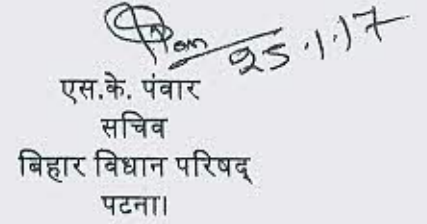 25.1.17
एस.के. पंवार
सचिव
बिहार विधान परिषद्
पटना।